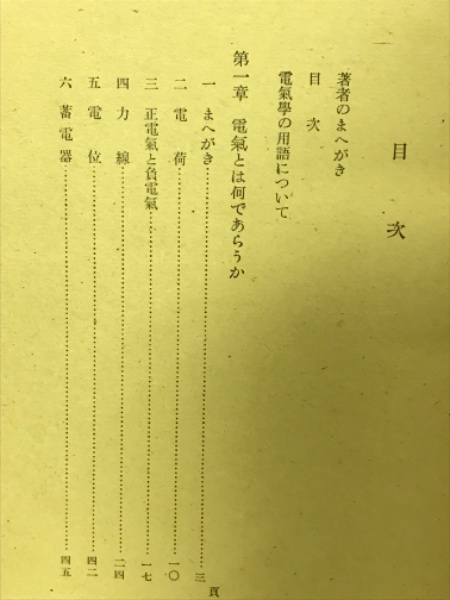 目次
著者のまへがき
目次
電氣學の用語について
第一章 電氣とは何であらうか
頁
一 まへがき……三
二 電荷……一〇
三 正電氣と負電氣……一七
四 力線……二四
五 電位……四二
六 蓄電器……四五